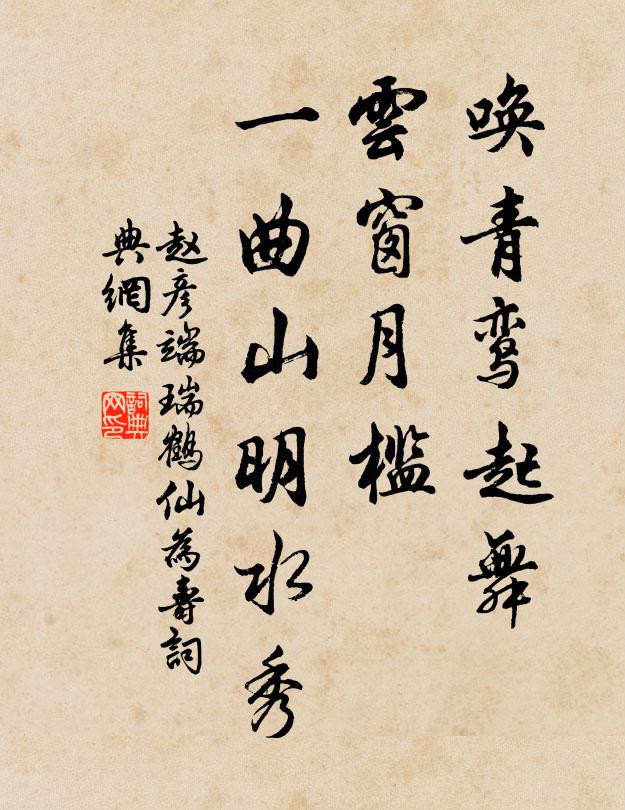 唤青鸾起舞
雲窗月檻
一曲山明水秀
赵彦端瑞鶴仙為壽詞
典網集
詞典网印